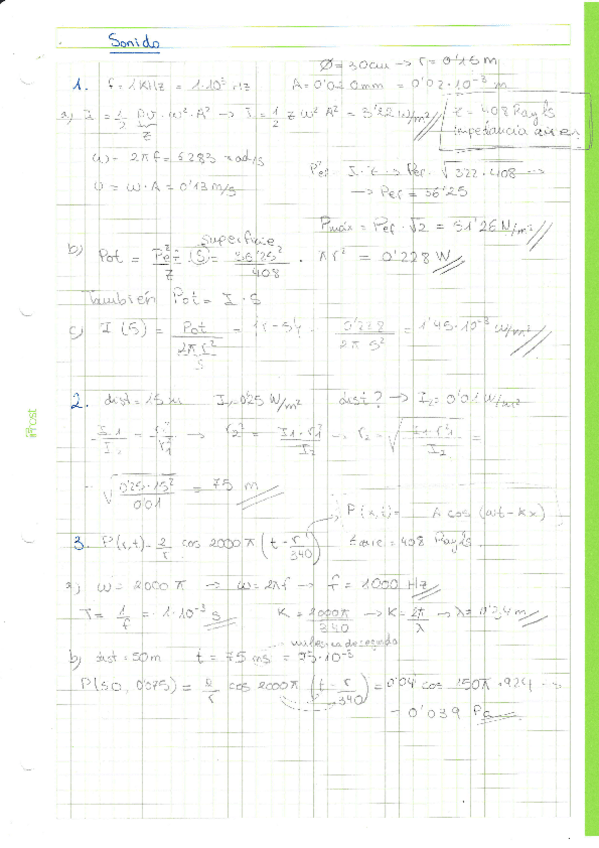 Sonido
Ø = 30cm → r = 0'15 m
1. f = 1KHz = 1·10³ Hz A = 0'020mm = 0'02·10⁻³ m
a) I = 1/2 ρv·ω²·A² → I = 1/2 z ω² A² = 3'22 W/m²
z
z = 408 Rayls
impedancia aire
ω = 2πf = 6283 rad/s
v = ω·A = 0'13 m/s
P²ef = I·z → Pef = √3'22·408 →
→ Pef = 36'25
Pmáx = Pef·√2 = 51'26 N/m²
superficie
b) Pot = P²ef/z · (S) = 36'25²/408 · πr² = 0'228 W
También Pot = I·S
c) I(5) = Pot/2πr² = 0'228/2π5² = 1'45·10⁻³ W/m²
5
2. dist = 15 m I₁ = 0'25 W/m² dist? → I₂ = 0'01 W/m²
I₁/I₂ = r₂²/r₁² → r₂² = I₁·r₁²/I₂ → r₂ = √I₁·r₁²/I₂ =
√0'25·15²/0'01 = 75 m
P(x,t) = A cos (ωt - kx)
3. P(r,t) = 2/r cos 2000π (t - r/340) z aire = 408 Rayls
a) ω = 2000π → ω = 2πf → f = 1000 Hz
T = 1/f = 1·10⁻³ s K = 2000π/340 → K = 2π/λ → λ = 0'34 m
milisegundo
b) dist = 50m t = 75 ms = 75·10⁻³
P(50, 0'075) = 2/r cos 2000π (t - r/340) = 0'04 cos 150π
- 0'039 Pa
iPrast